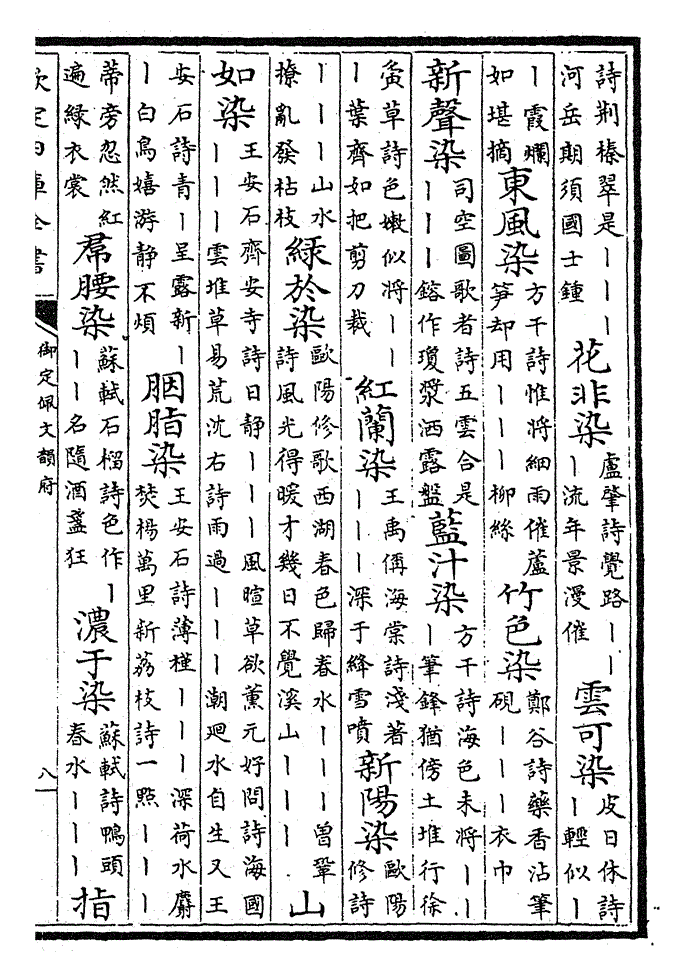 詩荊榛翠是丨丨丨
河岳期須國士鍾
花非染
盧肇詩覺路丨丨
丨流年景漫催
雲可染
皮日休詩
丨輕似丨
丨霞爛
如堪摘
東風染
方干詩惟將細雨催蘆
笋却用丨丨丨柳絲
竹色染
鄭谷詩藥香沾筆
硯丨丨丨衣巾
新聲染
司空圖歌者詩五雲合是
丨丨丨鎔作瓊漿洒露盤
藍汁染
方干詩海色未將丨丨
丨筆鋒猶傍土堆行徐
夤草詩色嫩似將丨丨
丨葉齊如把剪刀裁
紅蘭染
王禹偁海棠詩淺著
丨丨丨深于絳雪噴
新陽染
歐陽
修詩
丨丨丨山水
撩亂發枯枝
綠於染
歐陽修歌西湖春色歸春水丨丨丨曾鞏
詩風光得暖才幾日不覺溪山丨丨丨
山
如染
王安石齊安寺詩日靜丨丨丨風暄草欲薰元好問詩海國
丨丨丨雲堆草易荒沈右詩雨過丨丨丨潮廻水自生又王
安石詩青丨呈露新丨
丨白鳥嬉游靜不煩
胭脂染
王安石詩薄槿丨丨丨深荷水麝
焚楊萬里新荔枝詩一點丨丨丨
蒂旁忽然紅
遍綠衣裳
帬腰染
蘇軾石榴詩色作丨
丨丨名隨酒盞狂
濃于染
蘇軾詩鴨頭
春水丨丨丨
指
欽定四庫全書
御定佩文韻府
八